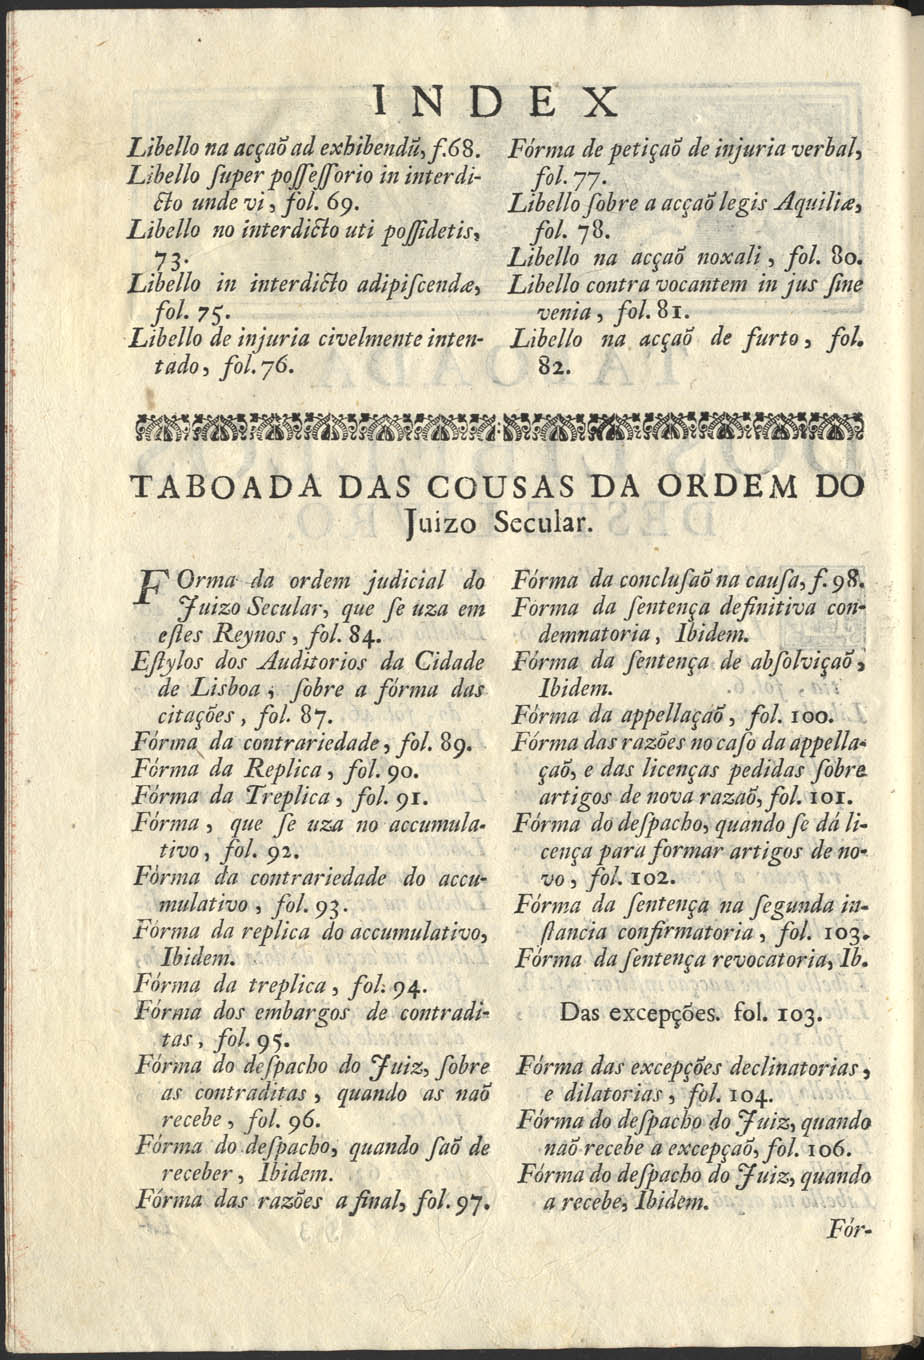 INDEX
Libello na acçaõ ad exhibendũ, f.68.
Libello ſuper poſſeſſorio in interdi-
cto unde vi, fol. 69.
Libello no interdicto uti poſſidetis,
73.
Libello in interdicto adipiſcendæ,
fol. 75.
Libello de injuria civelmente inten-
tado, fol. 76.
Fórma de petiçaõ de injuria verbal,
fol. 77.
Libello ſobre a acçaõ legis Aquiliæ,
fol. 78.
Libello na acçaõ noxali, fol. 80.
Libello contra vocantem in jus ſine
venia, fol. 81.
Libello na acçaõ de furto, fol.
82.
TABOADA DAS COUSAS DA ORDEM DO
Juizo Secular.
FOrma da ordem judicial do
Juizo Secular, que ſe uza em
eſtes Reynos, fol. 84.
Eſtylos dos Auditorios da Cidade
de Lisboa, ſobre a fórma das
citações, fol. 87.
Fórma da contrariedade, fol. 89.
Fórma da Replica, fol. 90.
Fórma da Treplica, fol. 91.
Fórma, que ſe uza no accumula-
tivo, fol. 92.
Fórma da contrariedade do accu-
mulativo, fol. 93.
Fórma da replica do accumulativo,
Ibidem.
Fórma da treplica, fol. 94.
Fórma dos embargos de contradi-
tas, fol. 95.
Fórma do deſpacho do Juiz, ſobre
as contraditas, quando as naõ
recebe, fol. 96.
Fórma do deſpacho, quando ſaõ de
receber, Ibidem.
Fórma das razões a final, fol. 97.
Fórma da concluſaõ na cauſa, f. 98.
Forma da ſentença definitiva con-
demnatoria, Ibidem.
Fórma da ſentença de abſolviçaõ,
Ibidem.
Fórma da appellaçaõ, fol. 100.
Fórma das razões no caſo da appella-
çaõ, e das licenças pedidas ſobre
artigos de nova razaõ, fol. 101.
Fórma do deſpacho, quando ſe dá li-
cença para formar artigos de no-
vo, fol. 102.
Fórma da ſentença na ſegunda in-
ſtancia confirmatoria, fol. 103.
Fórma da ſentença revocatoria, Ib.
Das excepções. fol. 103.
Fórma das excepções declinatorias,
e dilatorias, fol. 104.
Fórma do deſpacho do Juiz, quando
naõ recebe a excepçaõ, fol. 106.
Fórma do deſpacho do Juiz, quando
a recebe, Ibidem.
Fór-